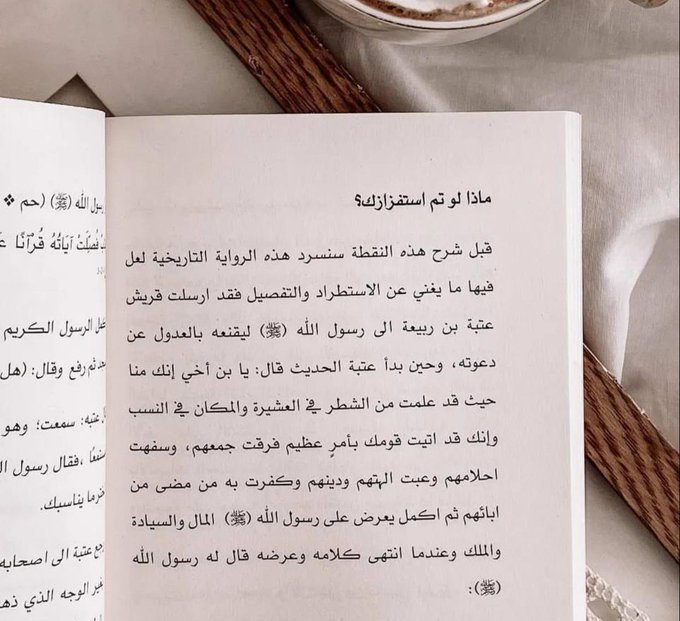 ماذا لو تم استفزازك؟
قبل شرح هذه النقطة سنسرد هذه الرواية التاريخية لعل
فيها ما يغني عن الاستطراد والتفصيل فقد ارسلت قريش
عتبة بن ربيعة الى رسول الله (ﷺ) ليقنعه بالعدول عن
دعوته، وحين بدأ عتبة الحديث قال: يا بن أخي إنك منا
حيث قد علمت من الشطر في العشيرة والمكان في النسب
وإنك قد اتيت قومك بأمرٍ عظيم فرقت جمعهم، وسفهت
احلامهم وعبت الهتهم ودينهم وكفرت به من مضى من
ابائهم ثم اكمل يعرض على رسول الله (ﷺ) المال والسيادة
والملك وعندما انتهى كلامه وعرضه قال له رسول الله
(ﷺ):
رسول الله (ﷺ) (حم ❖
فُصِّلَتْ آيَاتُهُ قُرْآنًا
الرسول الكريم
ثم رفع وقال: (هل
عتبه: سمعت؛ وهو
، فقال رسول
ما يناسبك.
عتبة الى اصحابه
الوجه الذي